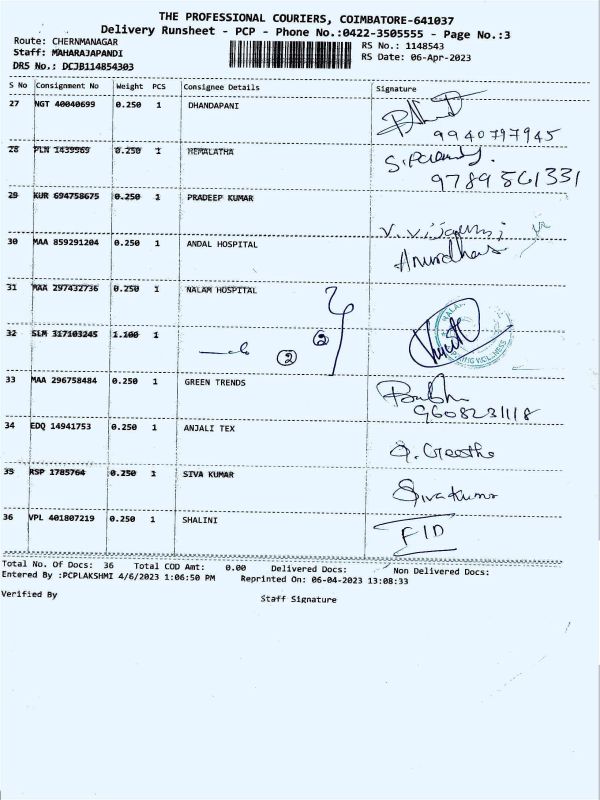 THE PROFESSIONAL COURIERS, COIMBATORE-641037
Delivery Runsheet - PCP - Phone No.:0422-3505555 - Page No.:3
Route: CHERNMANAGAR
RS No.: 1148543
Staff: MAHARAJAPANDI
RS Date: 06-Apr-2023
DRS No.: DCJB114854303
S No Consignment No Weight PCS Consignee Details Signature
27 NGT 40040699 0.250 1 DHANDAPANI
9940797945
28 PLN 1439969 0.250 1 HEMALATHA
9789561331
29 KUR 694758675 0.250 1 PRADEEP KUMAR
30 MAA 859291204 0.250 1 ANDAL HOSPITAL
31 MAA 297432736 0.250 1 NALAM HOSPITAL
32 SLM 317103245 1.100 1
2 2
33 MAA 296758484 0.250 1 GREEN TRENDS
9608231118
34 EDQ 14941753 0.250 1 ANJALI TEX
35 RSP 1785764 0.250 1 SIVA KUMAR
Sivakumar
36 VPL 401807219 0.250 1 SHALINI
FID
Total No. Of Docs: 36 Total COD Amt: 0.00 Delivered Docs: Non Delivered Docs:
Entered By :PCPLAKSHMI 4/6/2023 1:06:50 PM Reprinted On: 06-04-2023 13:08:33
Verified By Staff Signature